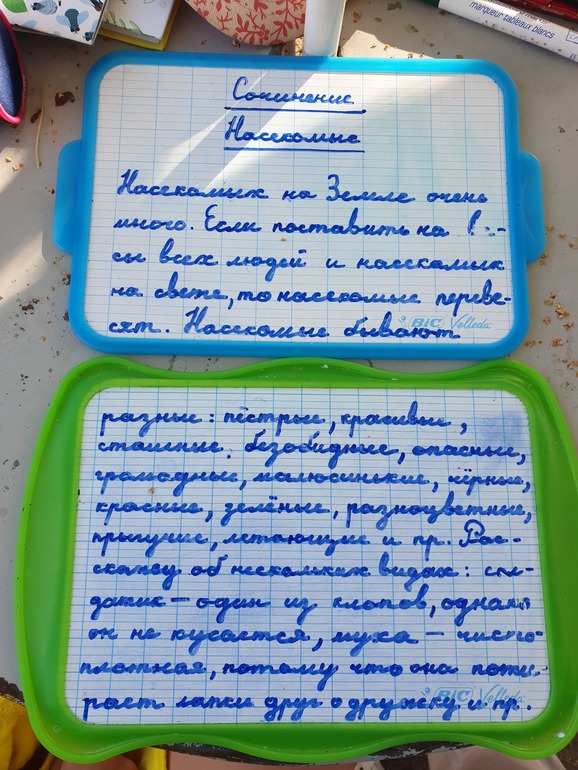 marqueur tableaux blancs
Сочинение
Насекомые
Насекомых на Земле очень
много. Если поставить на
сы всех людей и насекомых
на свете, то насекомые переве-
сят. Насекомые бывают
BIC Velleda
разные: пёстрые, красивые,
безобидные, опасные,
громадные, малюсинькие, чёрные,
красные, зелёные, разноцветные,
прыгучие, летающие и пр. Рас-
скажу об нескольких видах: сол-
датик – один из клопов, однако
он не кусается, муха – чисто-
плотная, потому что она поти-
рает лапки друг о дружку и пр.
BIC Velleda